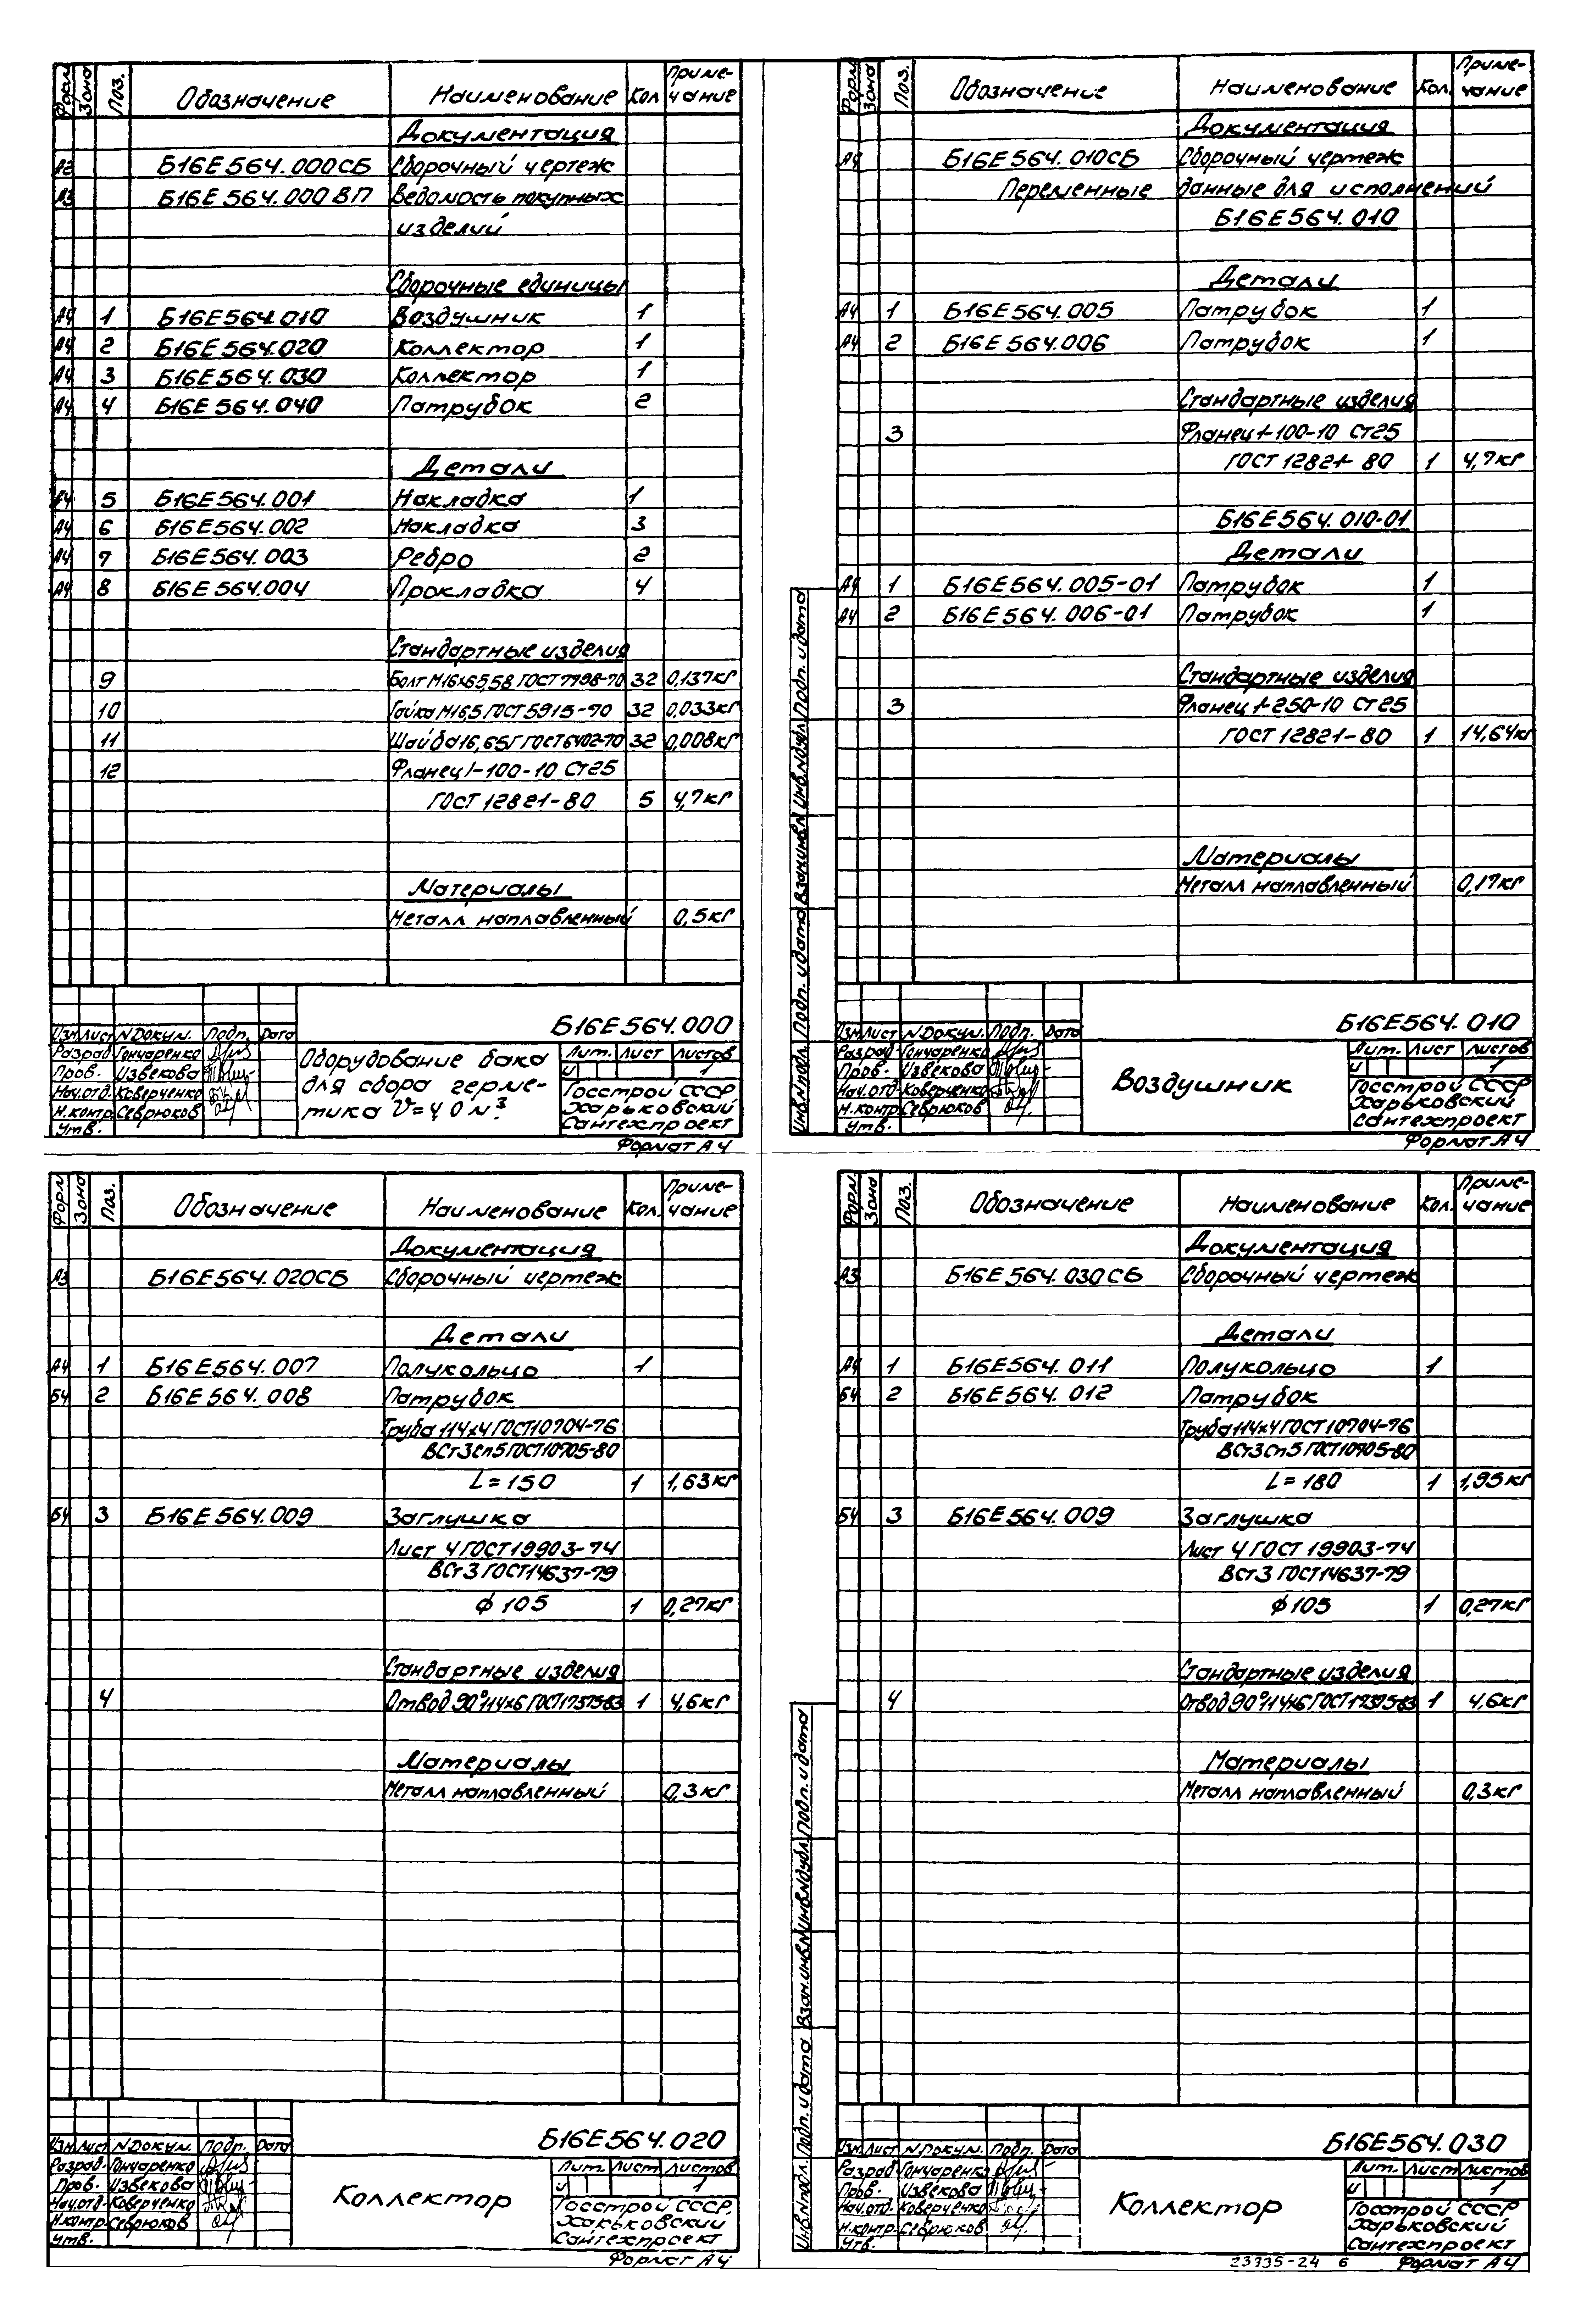 Форм Зона Поз. Обозначение Наименование Кол Приме-
чание
Документация
А2 Б16Е564.000СБ Сборочный чертеж
А3 Б16Е564.000ВП Ведомость покупных
изделий
Сборочные единицы
А4 1 Б16Е564.010 Воздушник 1
А4 2 Б16Е564.020 Коллектор 1
А4 3 Б16Е564.030 Коллектор 1
А4 4 Б16Е564.040 Патрубок 2
Детали
А4 5 Б16Е564.001 Накладка 1
А4 6 Б16Е564.002 Накладка 3
А4 7 Б16Е564.003 Ребро 2
А4 8 Б16Е564.004 Прокладка 4
Стандартные изделия
9 Болт М16×65,58 ГОСТ 7798-70 32 0,137кг
10 Гайка М16,5 ГОСТ 5915-70 32 0,033кг
11 Шайба 16, 65Г ГОСТ 6402-70 32 0,008кг
12 Фланец 1-100-10 Ст25
ГОСТ 12821-80 5 4,7кг
Материалы
Металл наплавленный 0,5кг
Б16Е564.000
Изм Лист N Докум. Подп. Дата
Разраб. Гончаренко
Пров. Извекова
Нач.отд. Коверченко
Н.контр. Севрюков
Утв.
Оборудование бака
для сбора герме-
тика V=4,0 м³
Лит. Лист Листов
и 1
Госстрой СССР
Харьковский
Сантехпроект
Формат А4
Форм Зона Поз. Обозначение Наименование Кол. Приме-
чание
Документация
А4 Б16Е564.010СБ Сборочный чертеж
Переменные данные для исполнений
Б16Е564.010
Детали
А4 1 Б16Е564.005 Патрубок 1
А4 2 Б16Е564.006 Патрубок 1
Стандартные изделия
3 Фланец 1-100-10 Ст25
ГОСТ 12821-80 1 4,7кг
Б16Е564.010-01
Детали
А4 1 Б16Е564.005-01 Патрубок 1
А4 2 Б16Е564.006-01 Патрубок 1
Стандартные изделия
3 Фланец 1-250-10 Ст25
ГОСТ 12821-80 1 14,64кг
Материалы
Металл наплавленный 0,17кг
Инв.N подл. Подп. и дата Взам.инв.N Инв.N дубл. Подп. и дата
Б16Е564.010
Изм Лист N Докум. Подп. Дата
Разраб. Гончаренко
Пров. Извекова
Нач.отд. Коверченко
Н.контр. Севрюков
Утв.
Воздушник
Лит. Лист Листов
и 1
Госстрой СССР
Харьковский
Сантехпроект
Формат А4
Форм Зона Поз. Обозначение Наименование Кол. Приме-
чание
Документация
А3 Б16Е564.020СБ Сборочный чертеж
Детали
А4 1 Б16Е564.007 Полукольцо 1
Б4 2 Б16Е564.008 Патрубок
Труба 114×4 ГОСТ 10704-76
ВСт3сп5 ГОСТ 10705-80
L=150 1 1,63кг
Б4 3 Б16Е564.009 Заглушка
Лист 4 ГОСТ 19903-74
ВСт3 ГОСТ 14637-79
ф 105 1 0,27кг
Стандартные изделия
4 Отвод 90° 114×6 ГОСТ 17375-83 1 4,6кг
Материалы
Металл наплавленный 0,3кг
Б16Е564.020
Изм Лист N Докум. Подп. Дата
Разраб. Гончаренко
Пров. Извекова
Нач.отд. Коверченко
Н.контр. Севрюков
Утв.
Коллектор
Лит. Лист Листов
и 1
Госстрой СССР
Харьковский
Сантехпроект
Формат А4
Форм. Зона Поз. Обозначение Наименование Кол. Приме-
чание
Документация
А3 Б16Е564.030СБ Сборочный чертеж
Детали
А4 1 Б16Е564.011 Полукольцо 1
Б4 2 Б16Е564.012 Патрубок
Труба 114×4 ГОСТ 10704-76
ВСт3сп5 ГОСТ 10705-80
L=180 1 1,95кг
Б4 3 Б16Е564.009 Заглушка
Лист 4 ГОСТ 19903-74
ВСт3 ГОСТ 14637-79
ф 105 1 0,27кг
Стандартные изделия
4 Отвод 90° 114×6 ГОСТ 17375-83 1 4,6кг
Материалы
Металл наплавленный 0,3кг
Инв.N подл. Подп. и дата Взам.инв.N Инв.N дубл. Подп. и дата
Б16Е564.030
Изм Лист N Докум. Подп. Дата
Разраб. Гончаренко
Пров. Извекова
Нач.отд. Коверченко
Н.контр. Севрюков
Утв.
Коллектор
Лит. Лист Листов
и 1
Госстрой СССР
Харьковский
Сантехпроект
23335-24 6 Формат А4